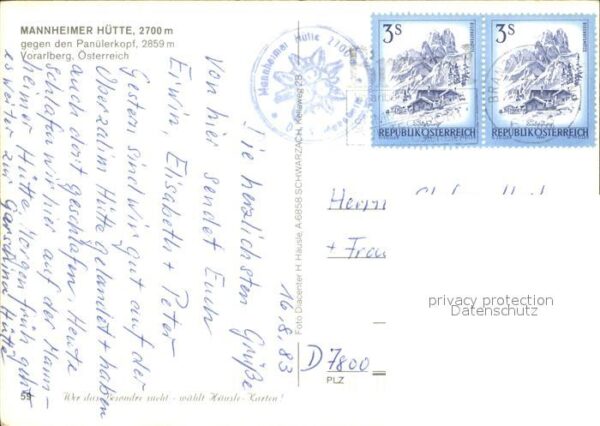 MANNHEIMER HÜTTE, 2700 m
gegen den Panülerkopf, 2859 m
Vorarlberg, Österreich
Die herzlichsten Grüße
von hier sendet Euch
Erwin, Elisabeth + Peter
Gestern sind wir gut auf der
Oberzalim Hütte gelandet + haben
auch dort geschlafen. Heute
schlafen wir hier auf der Mann-
heimer Hütte. Morgen früh geht
es weiter zur Garschina Hütte
16.8.83
Foto Diacenter H. Häusle, A-6858 SCHWARZACH, Kellaweg 28
Mannheimer Hütte 2700
3S
REPUBLIK ÖSTERREICH
3S
REPUBLIK ÖSTERREICH
Herrn
+ Frau
privacy protection
Datenschutz
D 7800
PLZ
59
Wer das Besondre sucht - wählt Häusle-Karten!